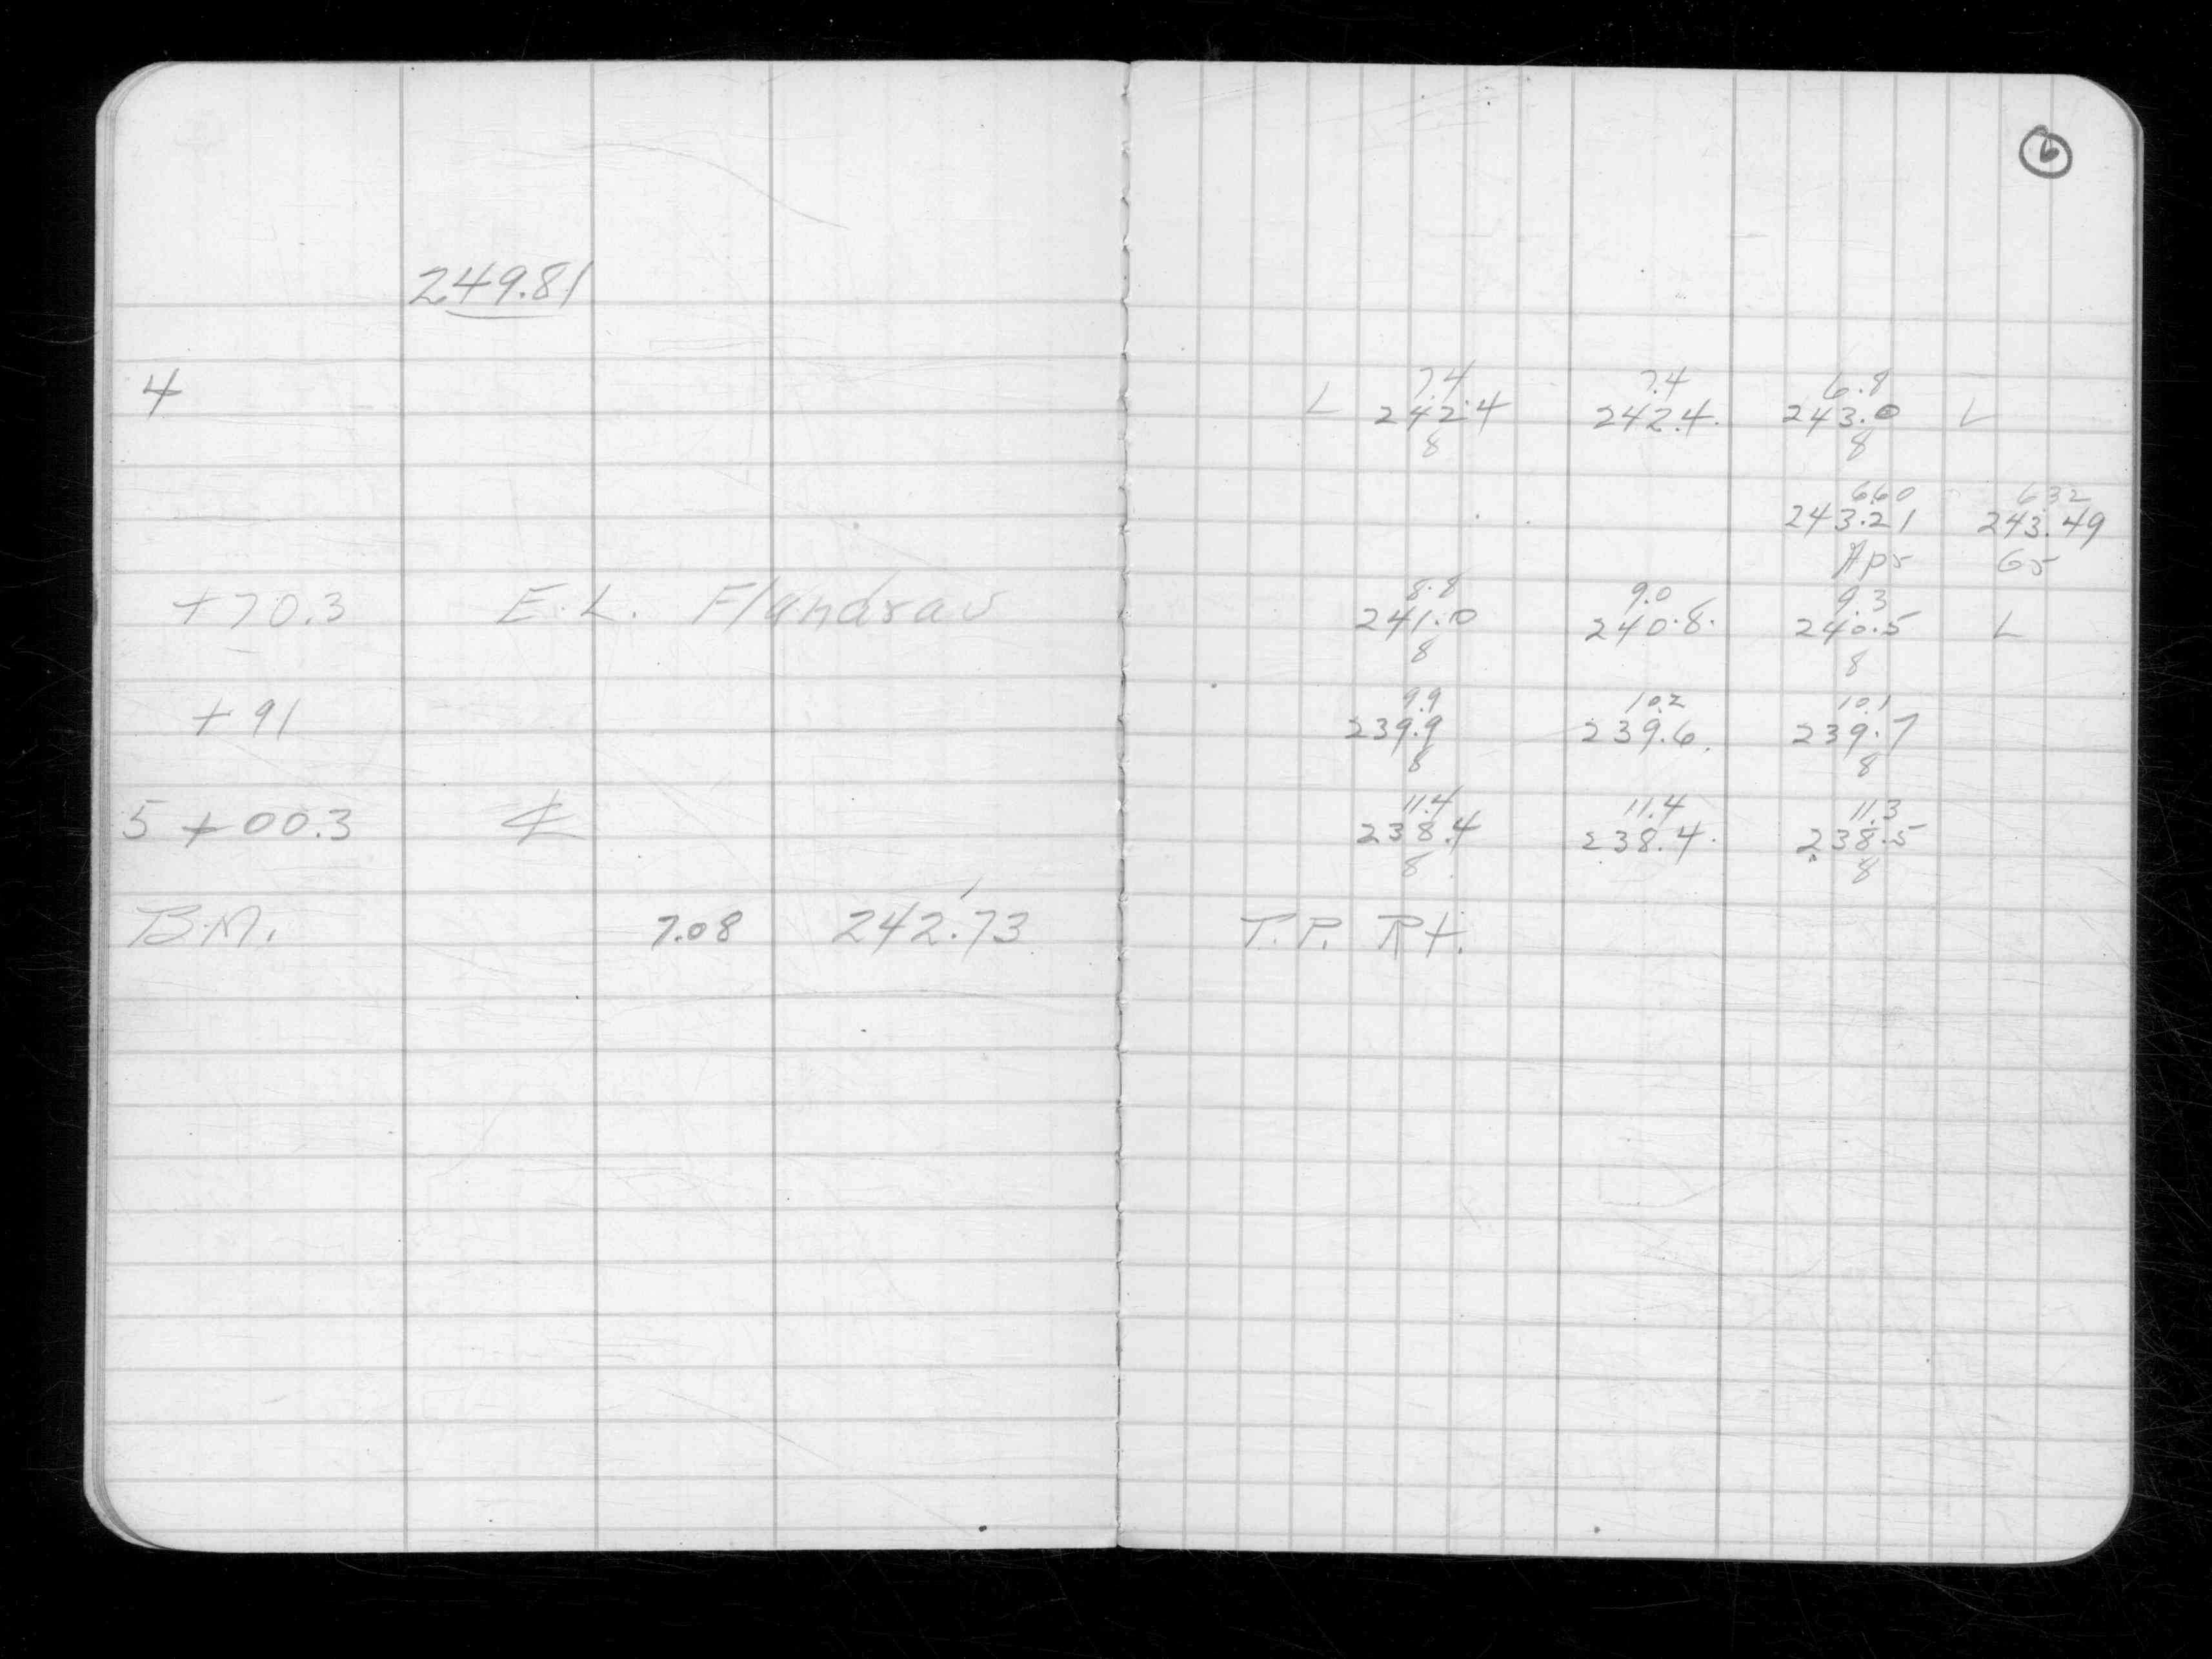 6
249.81
4
L 7.4 7.4 6.8
242.4 242.4. 243.0 L
8 8
6.60 6.32
243.21 243.49
Aps GS
+70.3 E.L. Flandrau
8.8 9.0 9.3
241.0 240.8. 240.5 L
8 8
+91
9.9 10.2 10.1
239.9 239.6. 239.7
8 8
5 +00.3 ℄
11.4 11.4 11.3
238.4 238.4. 238.5
8 8
B.M. 7.08 242.73 T.P. Rt.